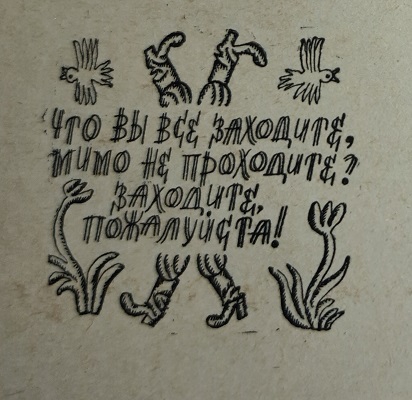 Что вы все заходите,
мимо не проходите?
Заходите,
пожалуйста!